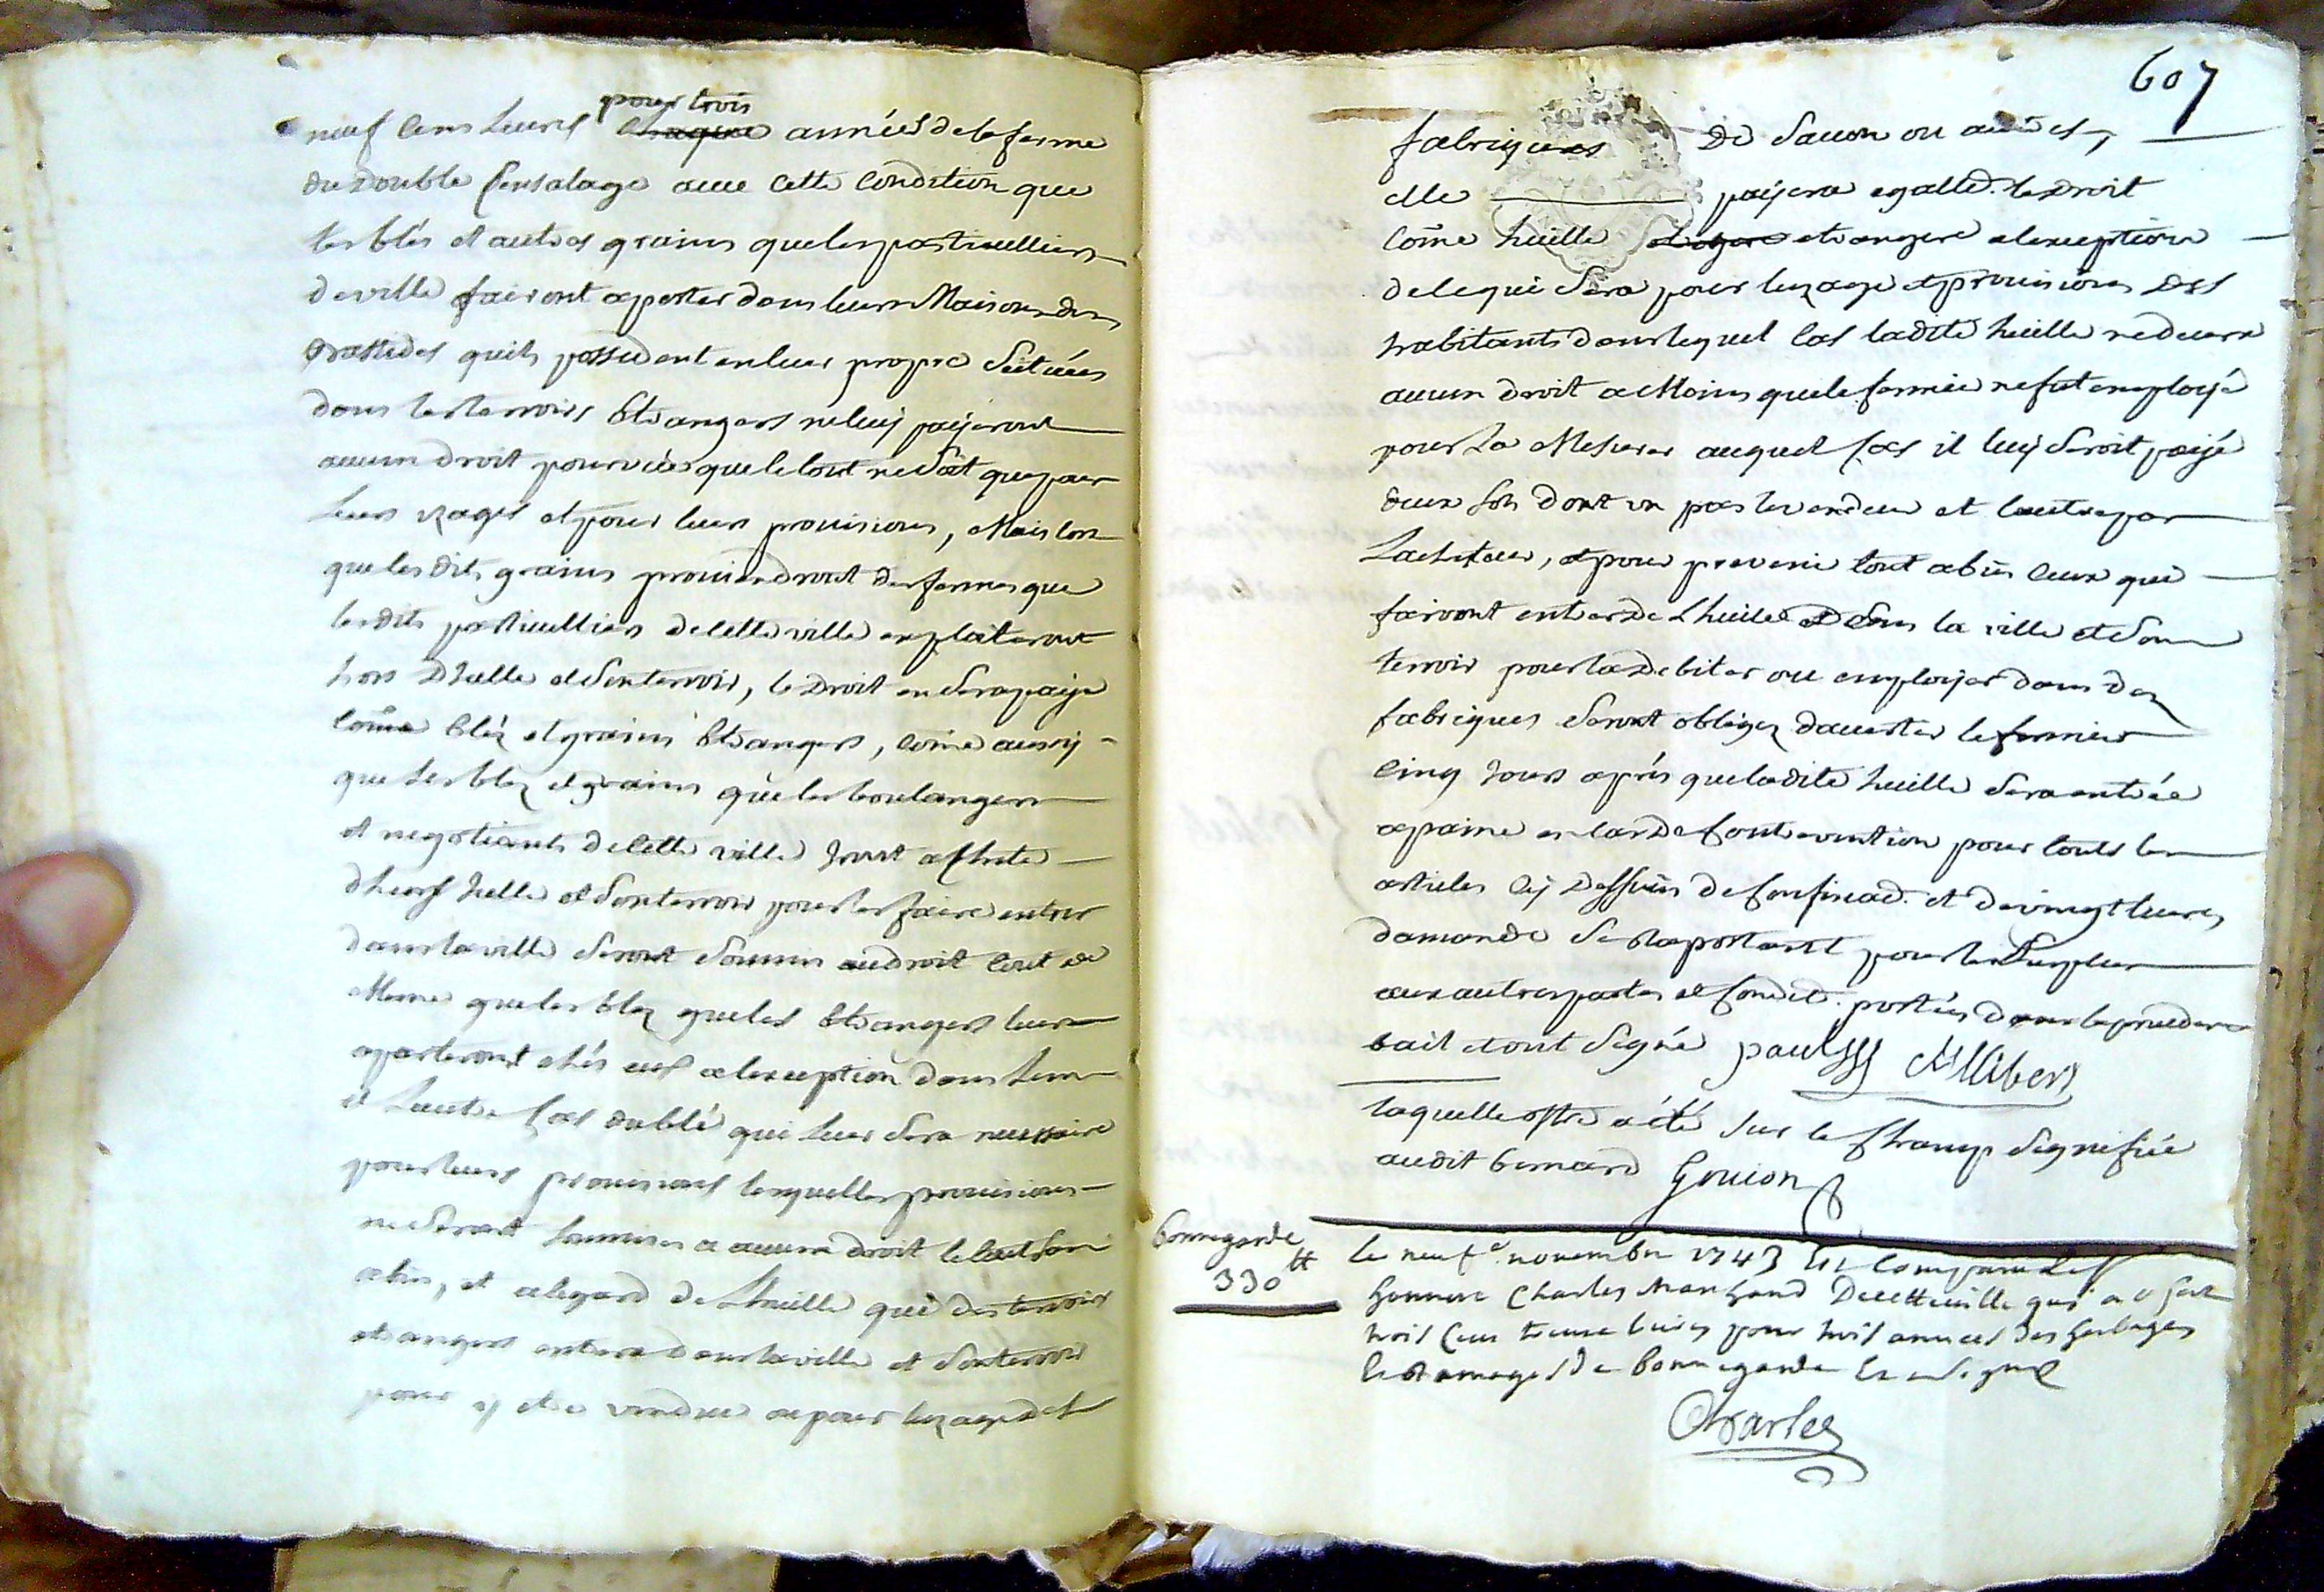 pour trois
neuf cens livres chaque années de la ferme
du double censalage avec cette condition que
les blés et autres grains que les particulliers
de ville fairont aporter dans leurs Maisons des
Bastides quils possedent en leur propre scituées
dans les terroirs Etrangers ne luy payeront
aucun droit pourveu que le tout ne soit que pour
leurs uzages et pour leurs provisions, Mais lors
que les dits grains proviendront des fermes que
les dits particulliers de cette ville exploiteront
hors Dicelle et son terroir, le Droit en sera payé
come bléz et grains Etrangers, come aussy
que les bléz et grains que les boulangers
et negotians de cette ville iront achete
dhors icelle et son terroir pour les faire entrer
dans la ville seront soumis au droit tout de
Meme que les bléz que les Etrangers leurs
aporteront chés eux a lexception dans lun
et lautre cas du blé qui leur sera necessaire
pour leurs provisions lesquelles provisions
ne seront soumises a aucun droit le tout sans
abus, et a legard de Lhuille que des terroirs
etrangers entrera dans la ville et son terroir
pour y etre vendue ou pour luzage des
607
fabriques De savon ou autres,
elle payera egallem.t le Droit
come huille etrangere a lexception
de le qui sera pour luzage et provisions des
habitants dans lequel cas ladite huille ne devra
aucun droit a Moins que le fermier ne fut employé
pour la Mesurer auquel cas il luy seroit payé
deux sols dont un par le vendeur et lautre par
Lacheteur, et pour prevenir tout abus ceux qui
fairont entrer de Lhuille dans la ville et son
terroir pour la Debiter ou employer dans des
fabriques seront obligez davertir le fermier
cinq jours aprés que ladite huille sera entrée
a paine en cas de Contravention pour touts les
articles cy dessus de Confiscaõn et de vingt livres
damande se raportant pour le surplus
aux autres pactes et Conditõns portées dans le precedent
bail et ont signé paul
laquelle offre a été sur le champ signifiée
audit bernard Gouion
bonnegarde
330 tt
le neuf.e novembre 1743 Est Comparu le S.r
honnore Charles marchand De cette ville qui a offert
trois Cens trente livres pour trois années des herbages
de bonnegarde Et a signé
Charles